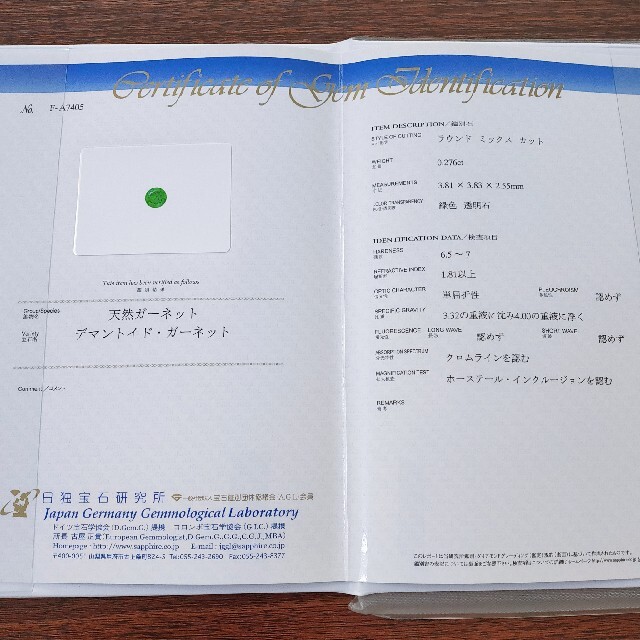 Certificate of Gem Identification
No. F-A7405
This item has been verified as follows
Group/Species 天然ガーネット
Variety デマントイド・ガーネット
Comment/コメント
日独宝石研究所 一般社団法人 宝石鑑別団体協議会 A.G.L. 会員
Japan Germany Gemmological Laboratory
ドイツ宝石学協会(D.Gem.G.)提携 コロンボ宝石学協会(G.I.C.)提携
所長 古屋 正貴(European Gemmologist,D.Gem.G.,C.G.,C.G.J.,MBA)
Homepage : http://www.sapphire.co.jp E-mail : jggl@sapphire.co.jp
ITEM DESCRIPTION/鑑別項目
STYLE OF CUTTING ラウンド ミックス カット
WEIGHT 0.276ct
MEASUREMENTS 3.81 × 3.83 × 2.55mm
COLOR・TRANSPARENCY 緑色 透明石
IDENTIFICATION DATA/検査項目
HARDNESS 6.5 ~ 7
REFRACTIVE INDEX 1.81以上
OPTIC CHARACTER 単屈折性 PLEOCHROISM 認めず
SPECIFIC GRAVITY 3.32の重液に沈み4.00の重液に浮く
FLUORESCENCE LONG WAVE 認めず SHORT WAVE 認めず
ABSORPTION SPECTRUM クロムラインを認む
MAGNIFICATION TEST ホーステール・インクルージョンを認む
REMARKS